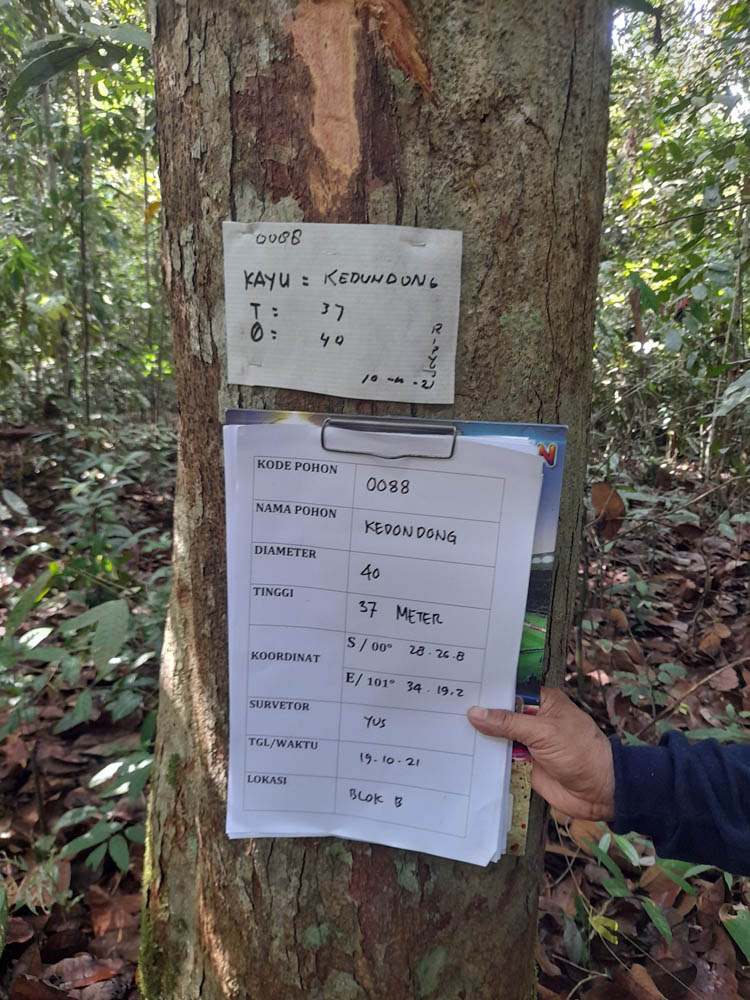 0088
KAYU = KEDUNDONG
T : 37
Ø : 40
10 - m - 21
N
KODE POHON 0088
NAMA POHON KEDONDONG
DIAMETER 40
TINGGI 37 METER
KOORDINAT S / 00° 28.26.8
E/ 101° 34.19,2
SURVETOR YUS
TGL/WAKTU 19-10-21
LOKASI BLOK B